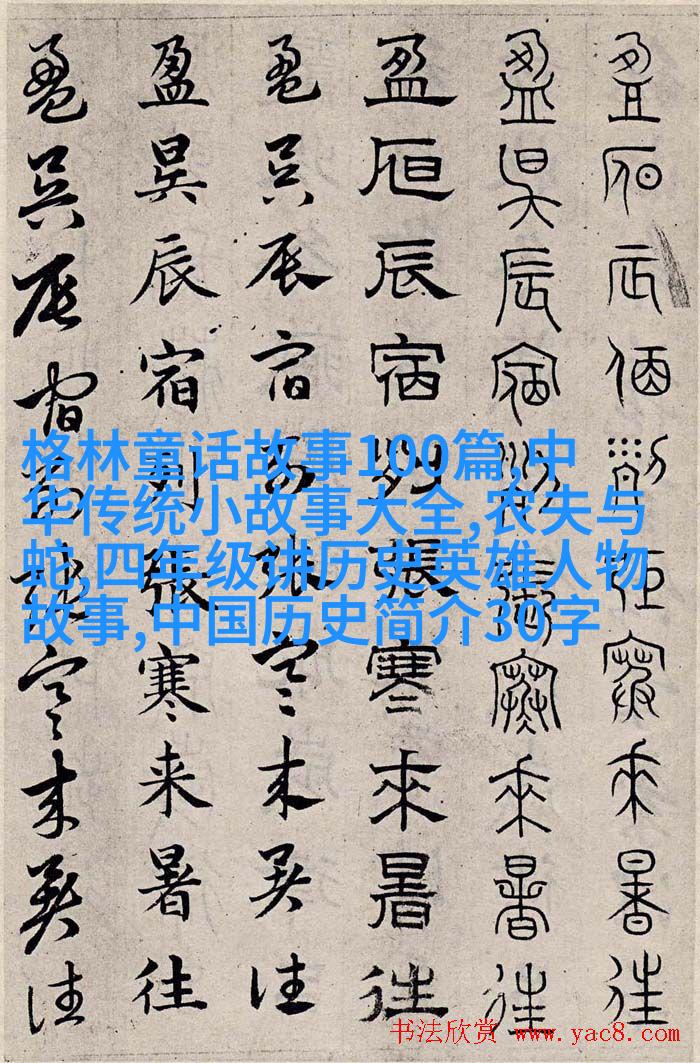 盈昃辰宿列張寒來暑往
盈昃辰宿列張寒來暑往
盈昃辰宿列張寒來暑往
盈昃辰宿列張寒来暑往
盈昃辰宿列張寒来暑往
盈昃辰宿列張寒来暑往
格林童话故事100篇,中
华传统小故事大全,农夫与
蛇,四年级讲历史英雄人物
故事,中国历史简介30字
书法欣赏 www.yac8.com